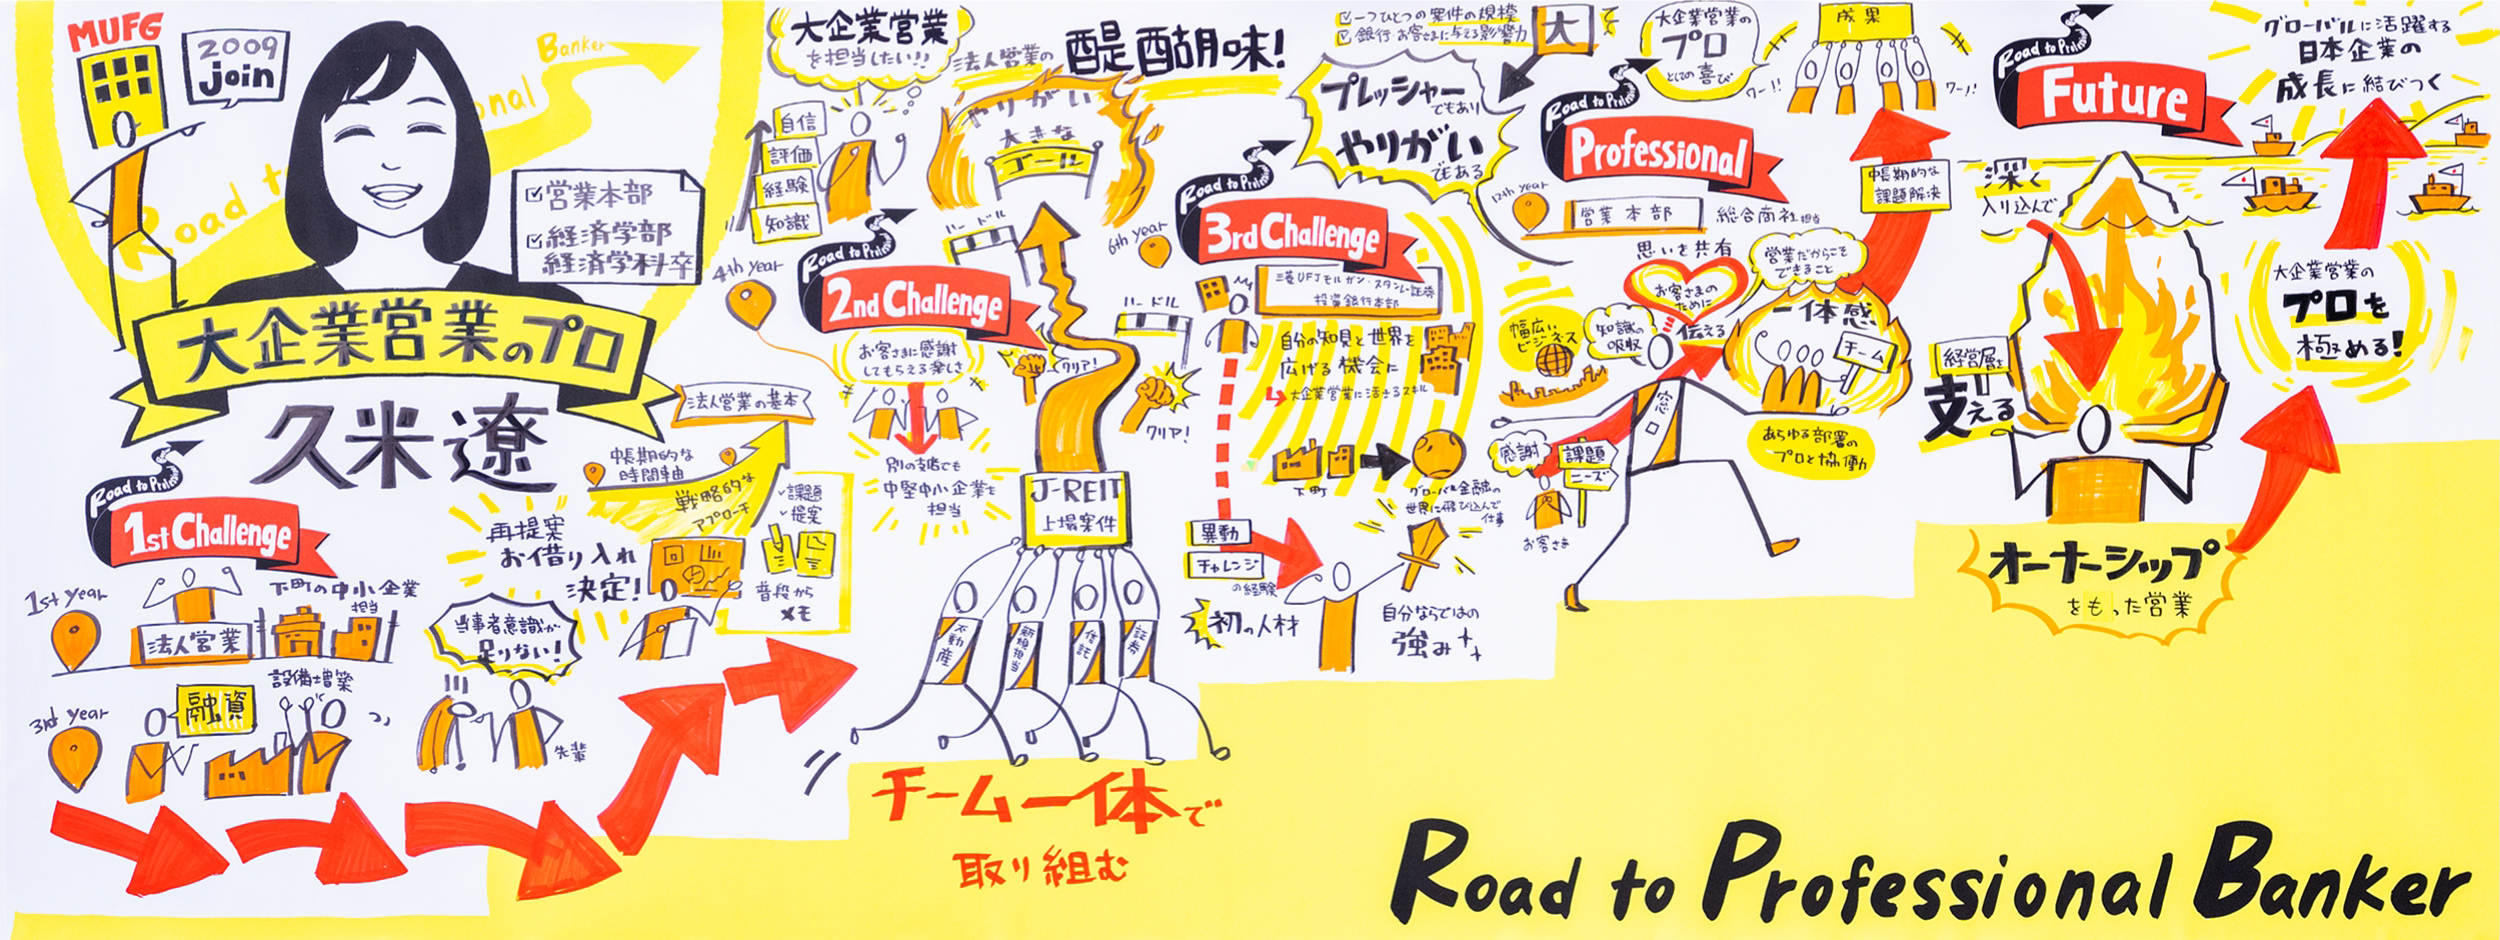 MUFG
2009
join
Banker
onal
Road to
営業本部
経済学部
経済学科卒
大企業営業のプロ
久米 遼
Road to Profes
1st Challenge
1st year
法人営業
下町の中小企業
担当
3rd year
融資
設備増築
当事者意識が
足りない!
先輩
再提案
お借り入れ
決定!
中長期的な
時間軸
戦略的な
アプローチ
法人営業の基本
課題
提案
普段から
メモ
大企業営業
を担当したい!!
自信
評価
経験
知識
4th year
Road to Profes
2nd Challenge
お客さまに感謝
してもらえる楽しさ
別の支店でも
中堅中小企業を
担当
法人営業の
醍醐味!
やりがい
大きな
ゴール
ハードル
ハードル
クリア!
クリア!
J-REIT
上場案件
不動産
新規担当
信託
証券
チーム一体で
取り組む
6th year
Road to Profes
3rd Challenge
三菱UFJモルガン・スタンレー証券
投資銀行本部
自分の知見と世界を
広げる機会に
大企業営業に活きるスキル
下町
グローバル金融の
世界に飛び込んで
仕事
異動
チャレンジ
の経験
初の人材
自分ならではの
強み
一つひとつの案件の規模
銀行・お客さまに与える影響力
大
プレッシャー
でもあり
やりがい
でもある
大企業営業の
プロ
としての喜び
成果
ワー!!
ワー!!
Road to Profes
Professional
12th year
営業本部
総合商社担当
思いを共有
お客さまの
ために
伝える
営業だからこそ
できること
幅広い
ビジネス
知識の
吸収
一体感
チーム
あらゆる部署の
プロと協働
感謝
課題
ニーズ
お客さま
中長期的な
課題解決
Road to Profes
Future
深く
入り込んで
経営層を
支える
オーナーシップ
をもった営業
大企業営業の
プロを
極める!
グローバルに活躍する
日本企業の
成長に結びつく
Road to Professional Banker